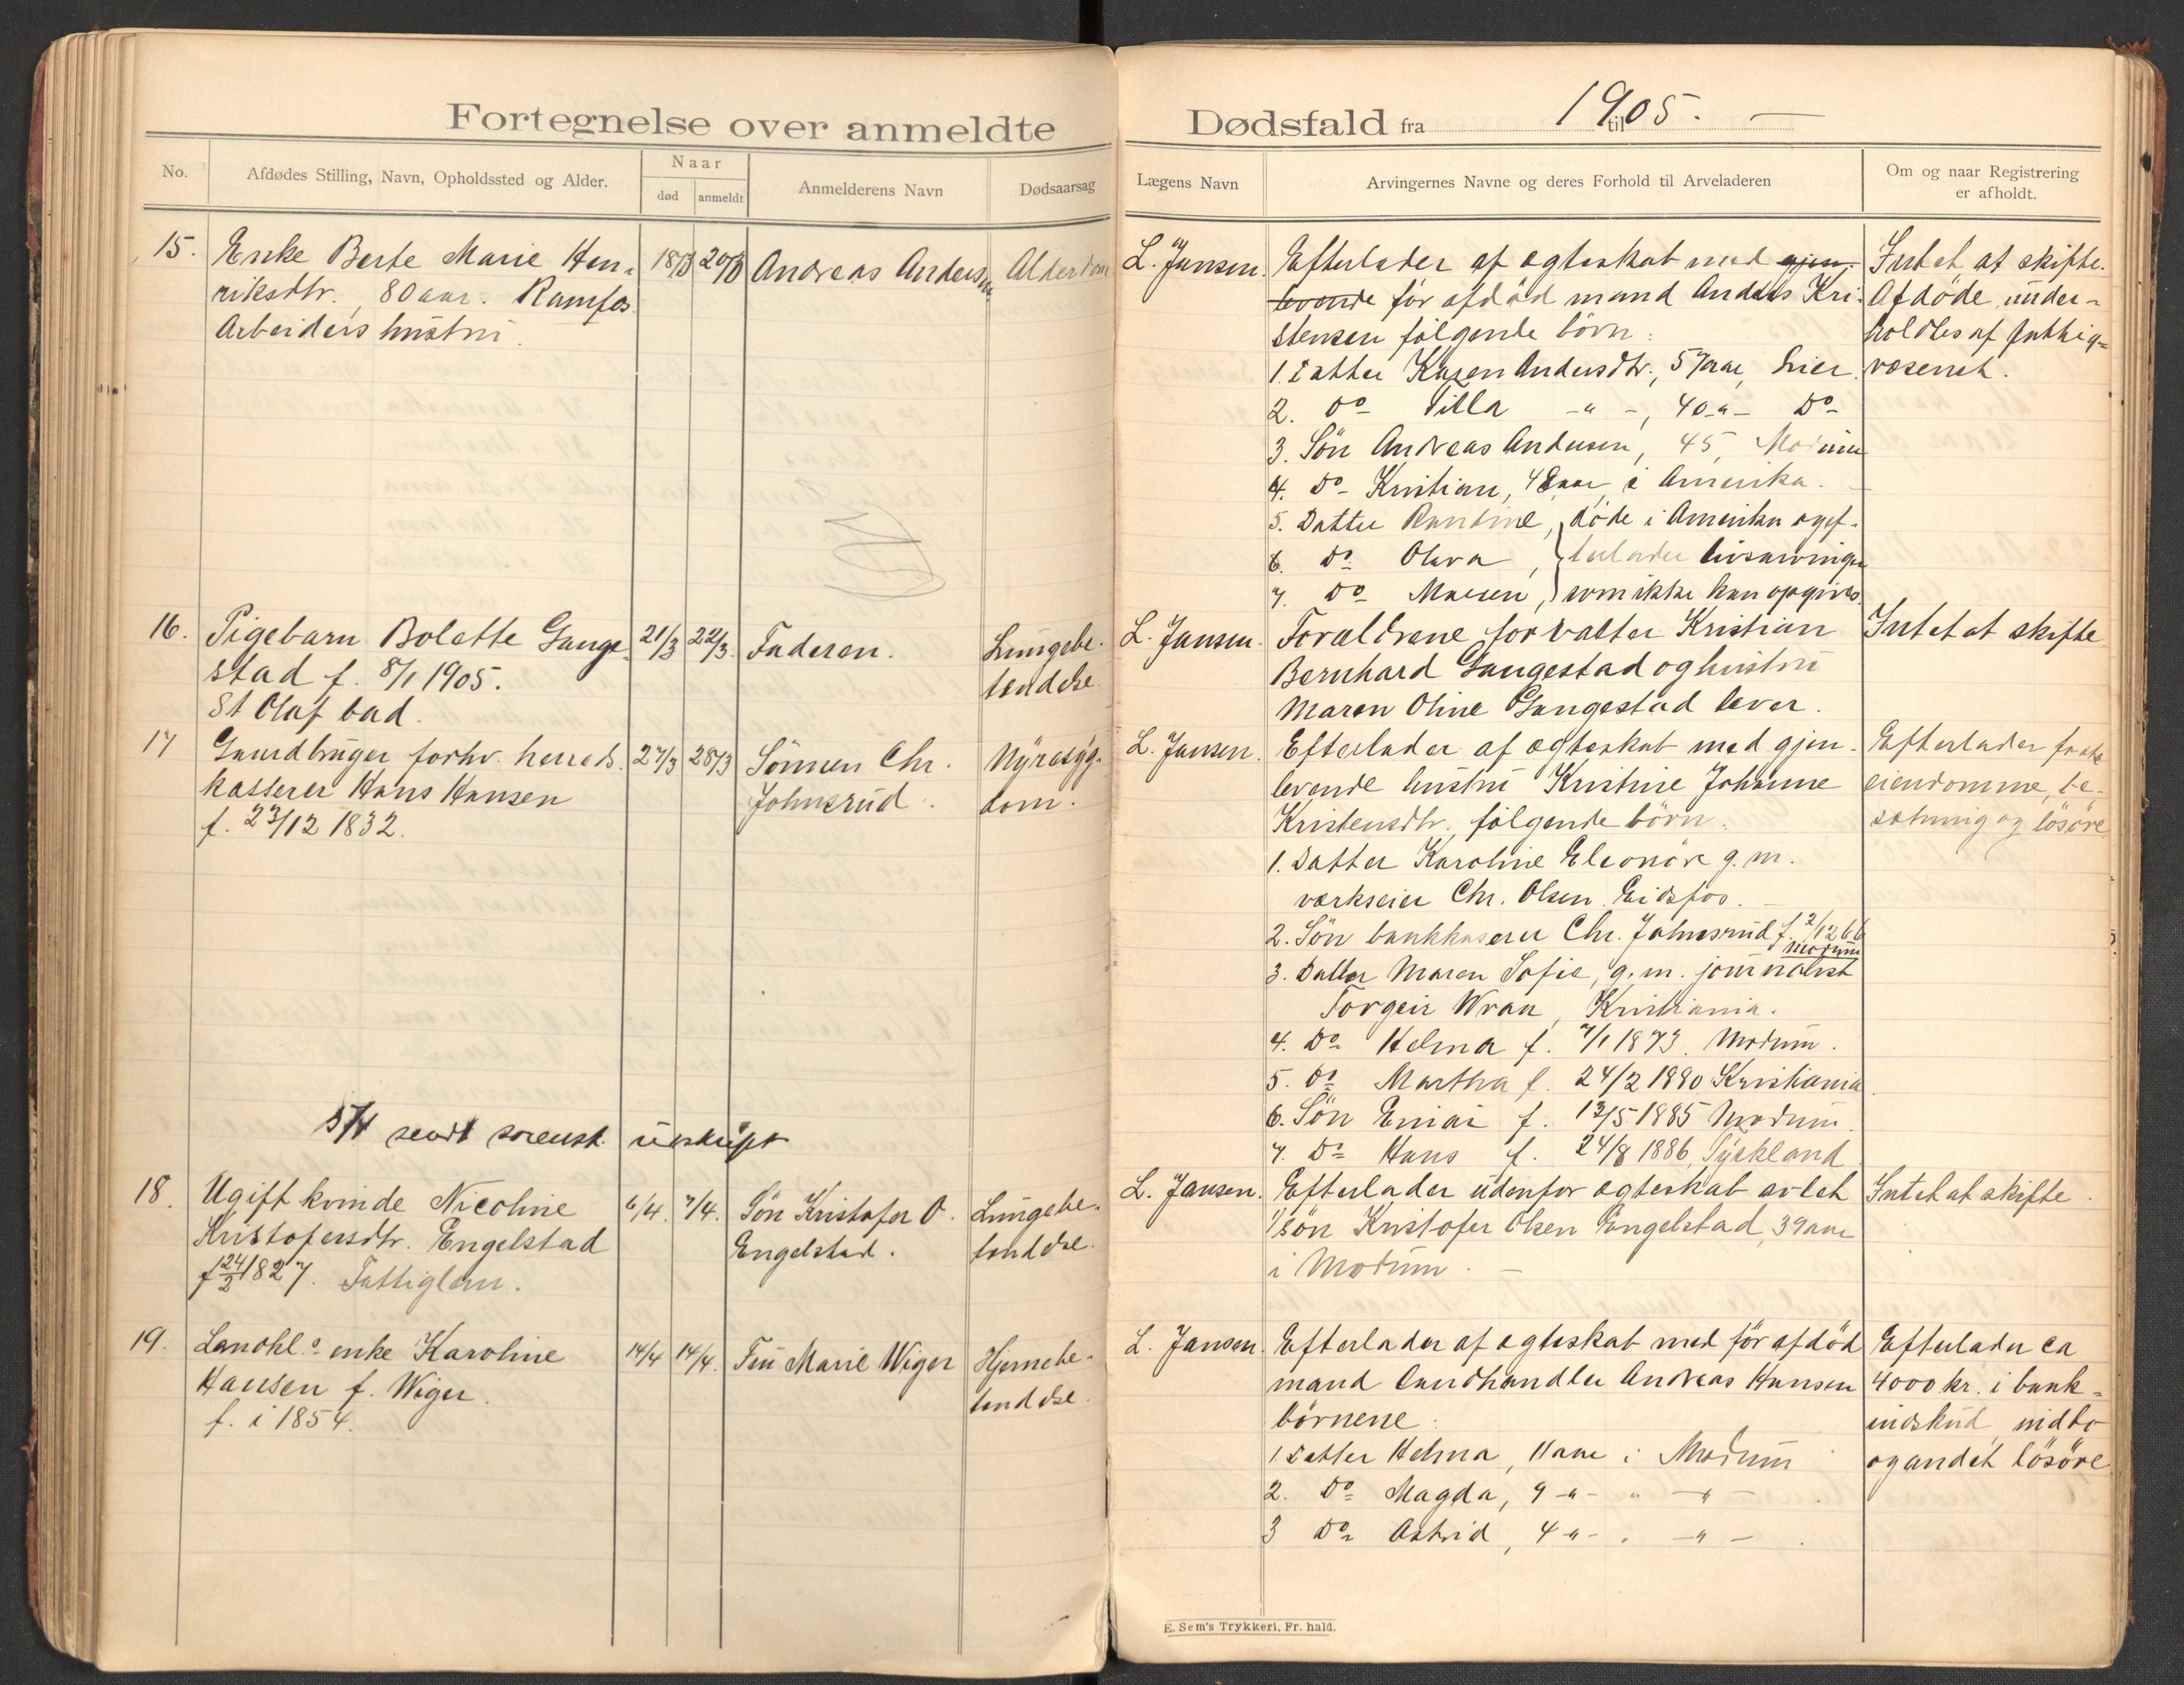 Fortegnelse over anmeldte
No.
Afdødes Stilling, Navn, Opholdssted og Alder.
Naar
død
anmeldt
Anmelderens Navn
Dødsaarsag
15.
Enke Berte Marie Hen-
riksdtr., 80 aar. Ramfos
Arbeiders hustru.
18/3
20/3
Andreas Andersen
Alderdom
16.
Pigebarn Bolette Gange-
stad f. 8/1 1905.
St Olaf bad.
21/3
22/3.
Faderen.
Lungebe-
tændelse
17
Gaardbruger forhv. herreds-
kasserer Hans Hansen
f. 23/12 1832.
27/3
28/3
Sønnen Chr.
Johnsrud.
Nyresyg-
dom.
5/4 sendt sorensk. udskrift
18.
Ugift kvinde Nicoline
Kristofersdtr. Engelstad
f 24/2 1827. Fattiglem.
6/4.
7/4.
Søn Kristofer O.
Engelstad.
Lungebe-
tændelse.
19.
Landhl.s enke Karoline
Hansen f. Wiger.
f. i 1854.
14/4
14/4.
Fru Marie Wiger
Hjernebe-
tændelse.
Dødsfald fra 1905. — til
Lægens Navn
Arvingernes Navne og deres Forhold til Arveladeren
Om og naar Registrering
er afholdt.
L. Jansen.
Efterlader af ægteskab med gjen-
levende før afdød mand Anders Kri-
stensen følgende børn:
1. Datter Karen Andersdtr., 57 aar, Lier.
2. Do Pilla -"-, 40 -"- Do
3. Søn Andreas Andersen, 45, Modum
4. Do Kristian, 48 aar, i Amerika.
5. Datter Randine, døde i Amerika og ef-
6. Do Oleva, terlader livsarvinger
7. Do Maren, som ikke kan opgives.
Intet at skifte.
Afdøde under-
holdtes af fattig-
væsenet.
L. Jansen.
Forældrene forvalter Kristian
Bernhard Gangestad og hustru
Maren Oline Gangestad lever.
Intet at skifte
L. Jansen.
Efterlader af ægteskab med gjen-
levende hustru Kristine Johanne
Kristensdtr. følgende børn:
1. Datter Karoline Eleonore g. m.
værkseier Chr. Olsen Eidsfos.
2. Søn bankkaserer Chr. Johnsrud f. 2/12 66
Modum
3. Datter Maren Sofie, g. m. journalist
Torgeir Wraa, Kristiania.
4. Do Helma f. 7/1 1873. Modum.
5. Do Martha f. 24/2 1880 Kristiania
6. Søn Einar f. 13/5 1885 Modum.
7. Do Hans f. 24/8 1886, Tyskland
Efterlader faste
eiendomme, be-
sætning og løsøre
L. Jansen.
Efterlader udenfor ægteskab avlet
1) søn Kristofer Olsen Engelstad, 39 aar
i Modum. —
Intet at skifte.
L. Jansen.
Efterlader af ægteskab med før afdød
mand landhandler Andreas Hansen
børnene:
1. Datter Helma, 11 aar i Modum
2. Do Magda, 9 -"- " -"-
3 Do Astrid, 4 -"- " -"-
Efterlader ca
4000 kr. i bank-
indskud, indbo
og andet løsøre
E. Sem's Trykkeri, Fr. hald.